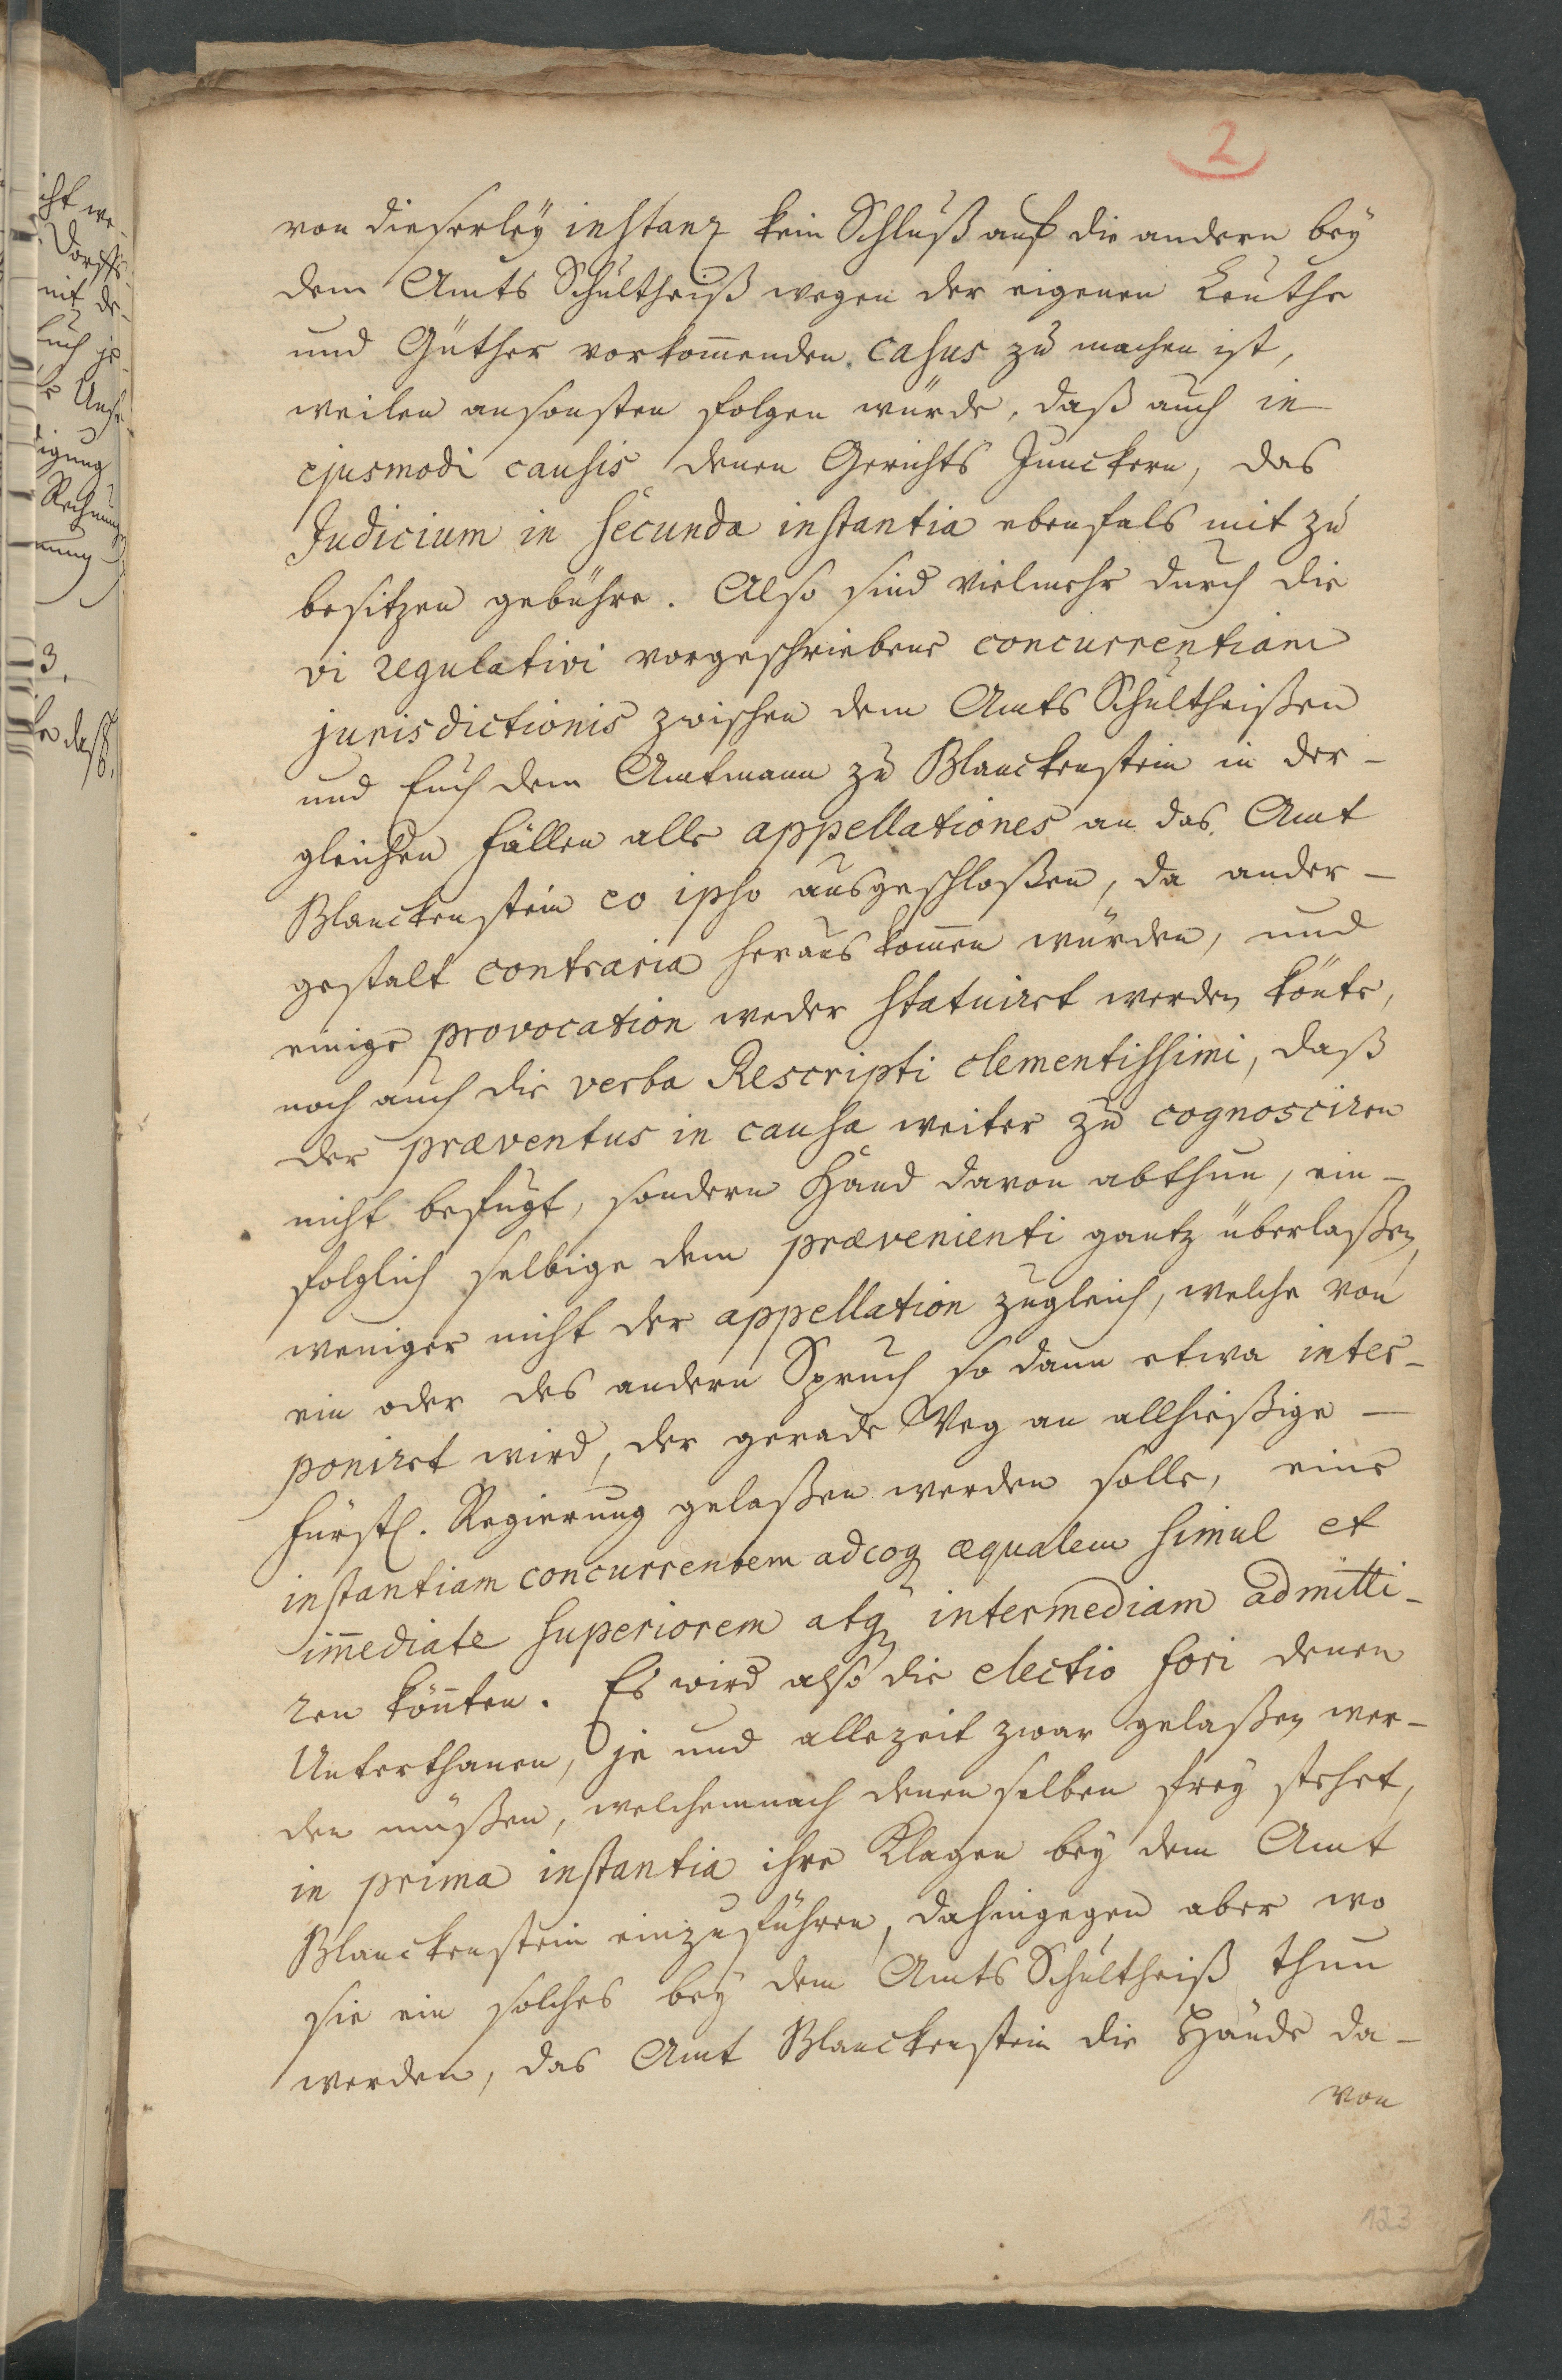 2
von dieserleÿ instanz kein Schluß auf die andern beÿ
dem Amts Schultheiß wegen der eigenen Leuthe
und Güther vorkom̅enden casus zu machen ist,
weilen ansonsten folgen würde, daß auch in
ejusmodi causis denen Gerichts Junckern, das
Judicium in secunda instantia ebenfals mit zu
besitzen gebühre. Also sind vielmehr durch die
vi regulativi vorgeschriebene concurrentiam
jurisdictionis zwischen dem Amts Schultheißen
und Euch dem Amtmann zu Blanckenstein in der-
gleichen Fällen alle appellationes an das Amt
Blanckenstein eo ipso ausgeschloßen, da ander-
gestalt contraria heraus kom̅en würden, und
einige provocation weder statuiret werden kön̅te,
noch auch die verba Rescripti clementissimi, daß
der præventus in causa weiter zu cognosciren
nicht befugt, sondern Hand davon abthun, ein-
folglich selbige dem prævenienti gantz überlaßen,
weniger nicht der appellation zugleich, welche von
ein oder des andern Spruch so dann etwa inter-
poniret wird, der gerade Weg an allhießige
Fürstl. Regierung gelaßen werden solle, eine
instantiam concurrentem adeoq æqualem simul et
im̅ediate superiorem atq intermediam admitti-
ren kön̅ten. Es wird also die electio fori denen
Unterthanen, je und allezeit zwar gelaßen wer-
den müßen, welchemnach denenselben freÿ stehet,
in prima instantia ihre Klagen beÿ dem Amt
Blanckenstein einzuführen, dahingegen aber wo
sie ein solches beÿ dem Amts Schultheiß thun
werden, das Amt Blanckenstein die Hände da-
von
123